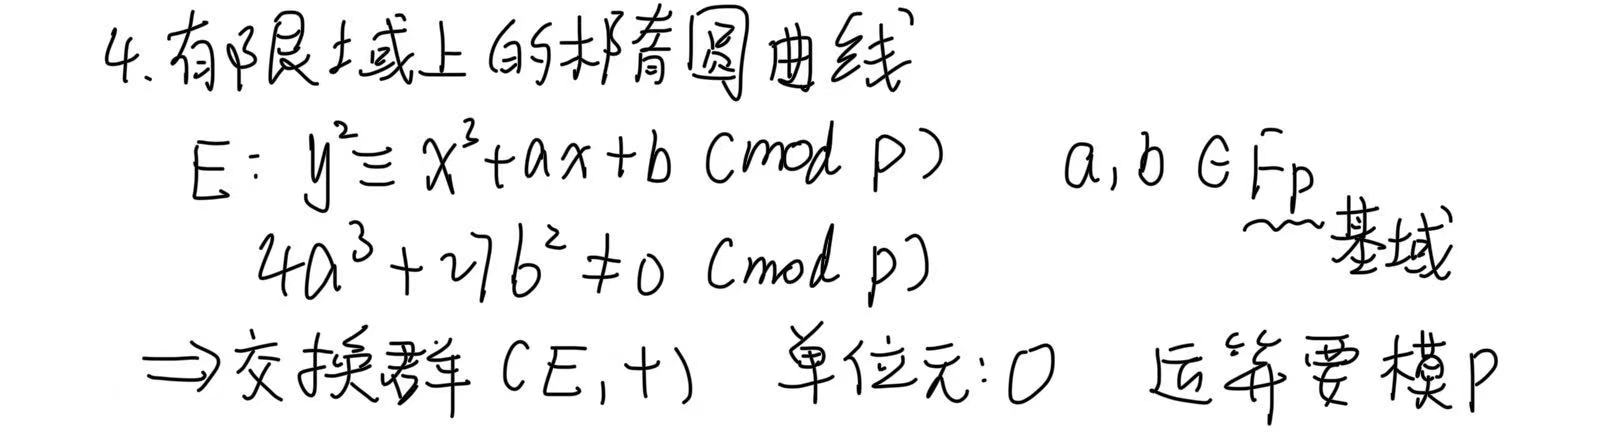 4. 有限域上的椭圆曲线
E: y² ≡ x³+ax+b (mod p) a,b ∈ Fp
基域
4a³+27b² ≠ 0 (mod p)
⇒ 交换群 (E,+) 单位元: O 运算要模p